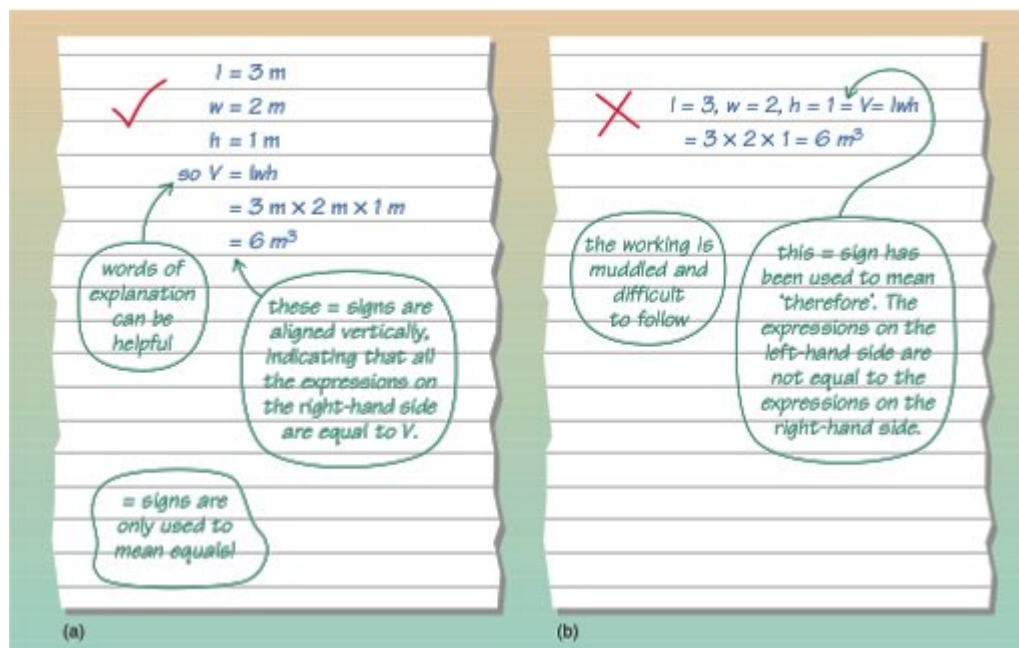 l = 3 m
w = 2 m
h = 1 m
so V = lwh
= 3 m × 2 m × 1 m
= 6 m³
words of
explanation
can be
helpful
these = signs are
aligned vertically,
indicating that all
the expressions on
the right-hand side
are equal to V.
= signs are
only used to
mean equals!
(a)
l = 3, w = 2, h = 1 = V= lwh
= 3 × 2 × 1 = 6 m³
the working is
muddled and
difficult
to follow
this = sign has
been used to mean
‘therefore’. The
expressions on the
left-hand side are
not equal to the
expressions on the
right-hand side.
(b)